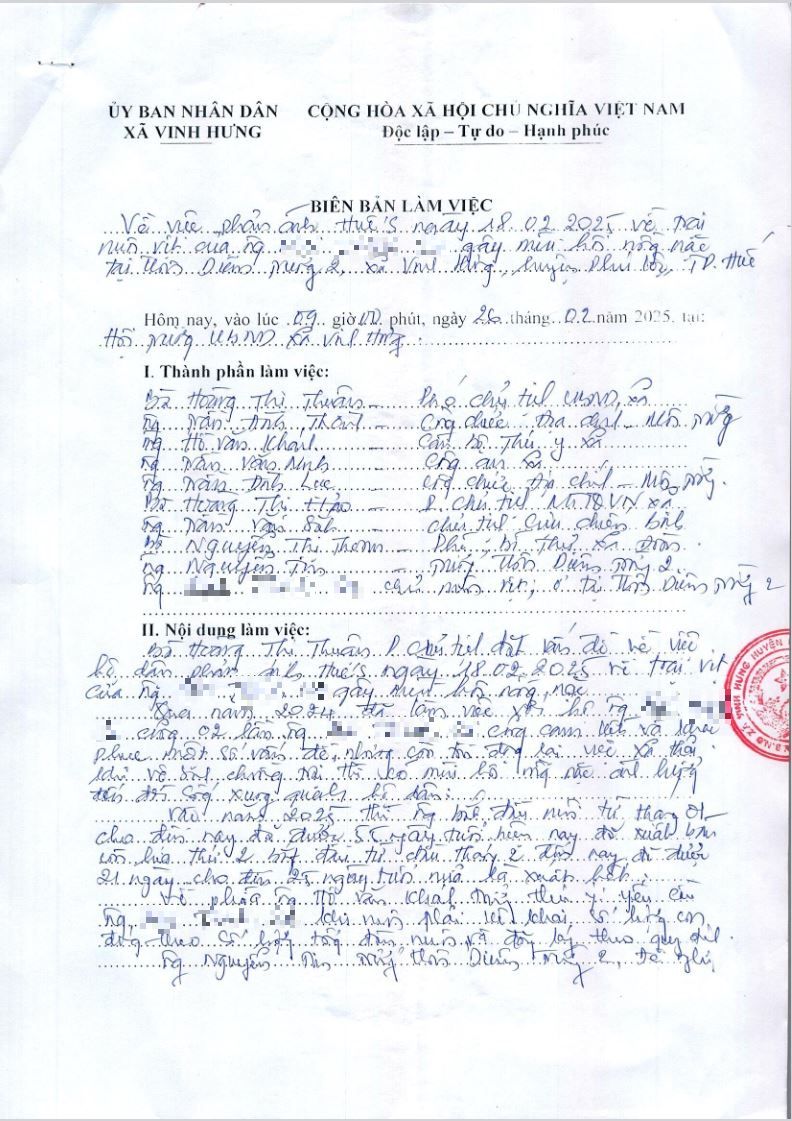 ỦY BAN NHÂN DÂN
XÃ VINH HƯNG
CỘNG HÒA XÃ HỘI CHỦ NGHĨA VIỆT NAM
Độc lập – Tự do – Hạnh phúc
BIÊN BẢN LÀM VIỆC
Về việc phản ánh Huế S ngày 18.02.2025 về trại
nuôi vịt của ông gây mùi hôi nồng nặc
tại thôn Diêm Trường 2, xã Vinh Hưng, huyện Phú Lộc, TP. Huế
Hôm nay, vào lúc 09 giờ 00 phút, ngày 26 tháng 02 năm 2025, tại:
Hội trường UBND xã Vinh Hưng.
I. Thành phần làm việc:
Bà Hoàng Thị Thuận – Phó chủ tịch UBND xã
Ông Trần Đình – Công chức Địa chính – Môi trường
Ông Hồ Văn Khánh – Cán bộ Thú y xã
Ông Trần Văn – Công an xã
Ông Trần Đình Lực – Công chức Địa chính – Môi trường.
Bà Hoàng Thị Hảo – P. chủ tịch MTTQVN xã
Ông Trần Văn – Chủ tịch Cựu chiến binh
Bà Nguyễn Thị – Phó bí thư xã Đoàn.
Ông Nguyễn Tín – Trưởng thôn Diêm Trường 2.
Ông chủ nuôi vịt, ở tại thôn Diêm Trường 2
II. Nội dung làm việc:
Bà Hoàng Thị Thuận P. Chủ tịch đặt vấn đề về việc
hộ dân phản ánh Huế S ngày 18.02.2025 về trại vịt
của ông gây mùi hôi nồng nặc
Qua năm 2024 đã làm việc với hộ ông
cũng 02 lần, ông cũng cam kết và khắc
phục một số vấn đề, nhưng còn tồn đọng lại việc xả thải
khi vệ sinh chuồng trại thì có mùi hôi nồng nặc ảnh hưởng
đến đời sống xung quanh hộ dân.
Vào năm 2025 thì ông bắt đầu nuôi từ tháng 01
cho đến nay đã được 55 ngày tuổi hiện nay đã xuất bán
còn lứa thứ 2 bắt đầu từ đầu tháng 2 đến nay đã được
21 ngày cho đến 25 ngày tuổi nữa là xuất bán.
Về phần ông Hồ Văn Khánh thú y yêu cầu
ông khi nuôi phải kê khai số lượng con
đúng theo số lượng tổng đàn nuôi và đăng ký theo quy định.
Ông Nguyễn Tín trưởng thôn Diêm Trường 2, Đề nghị